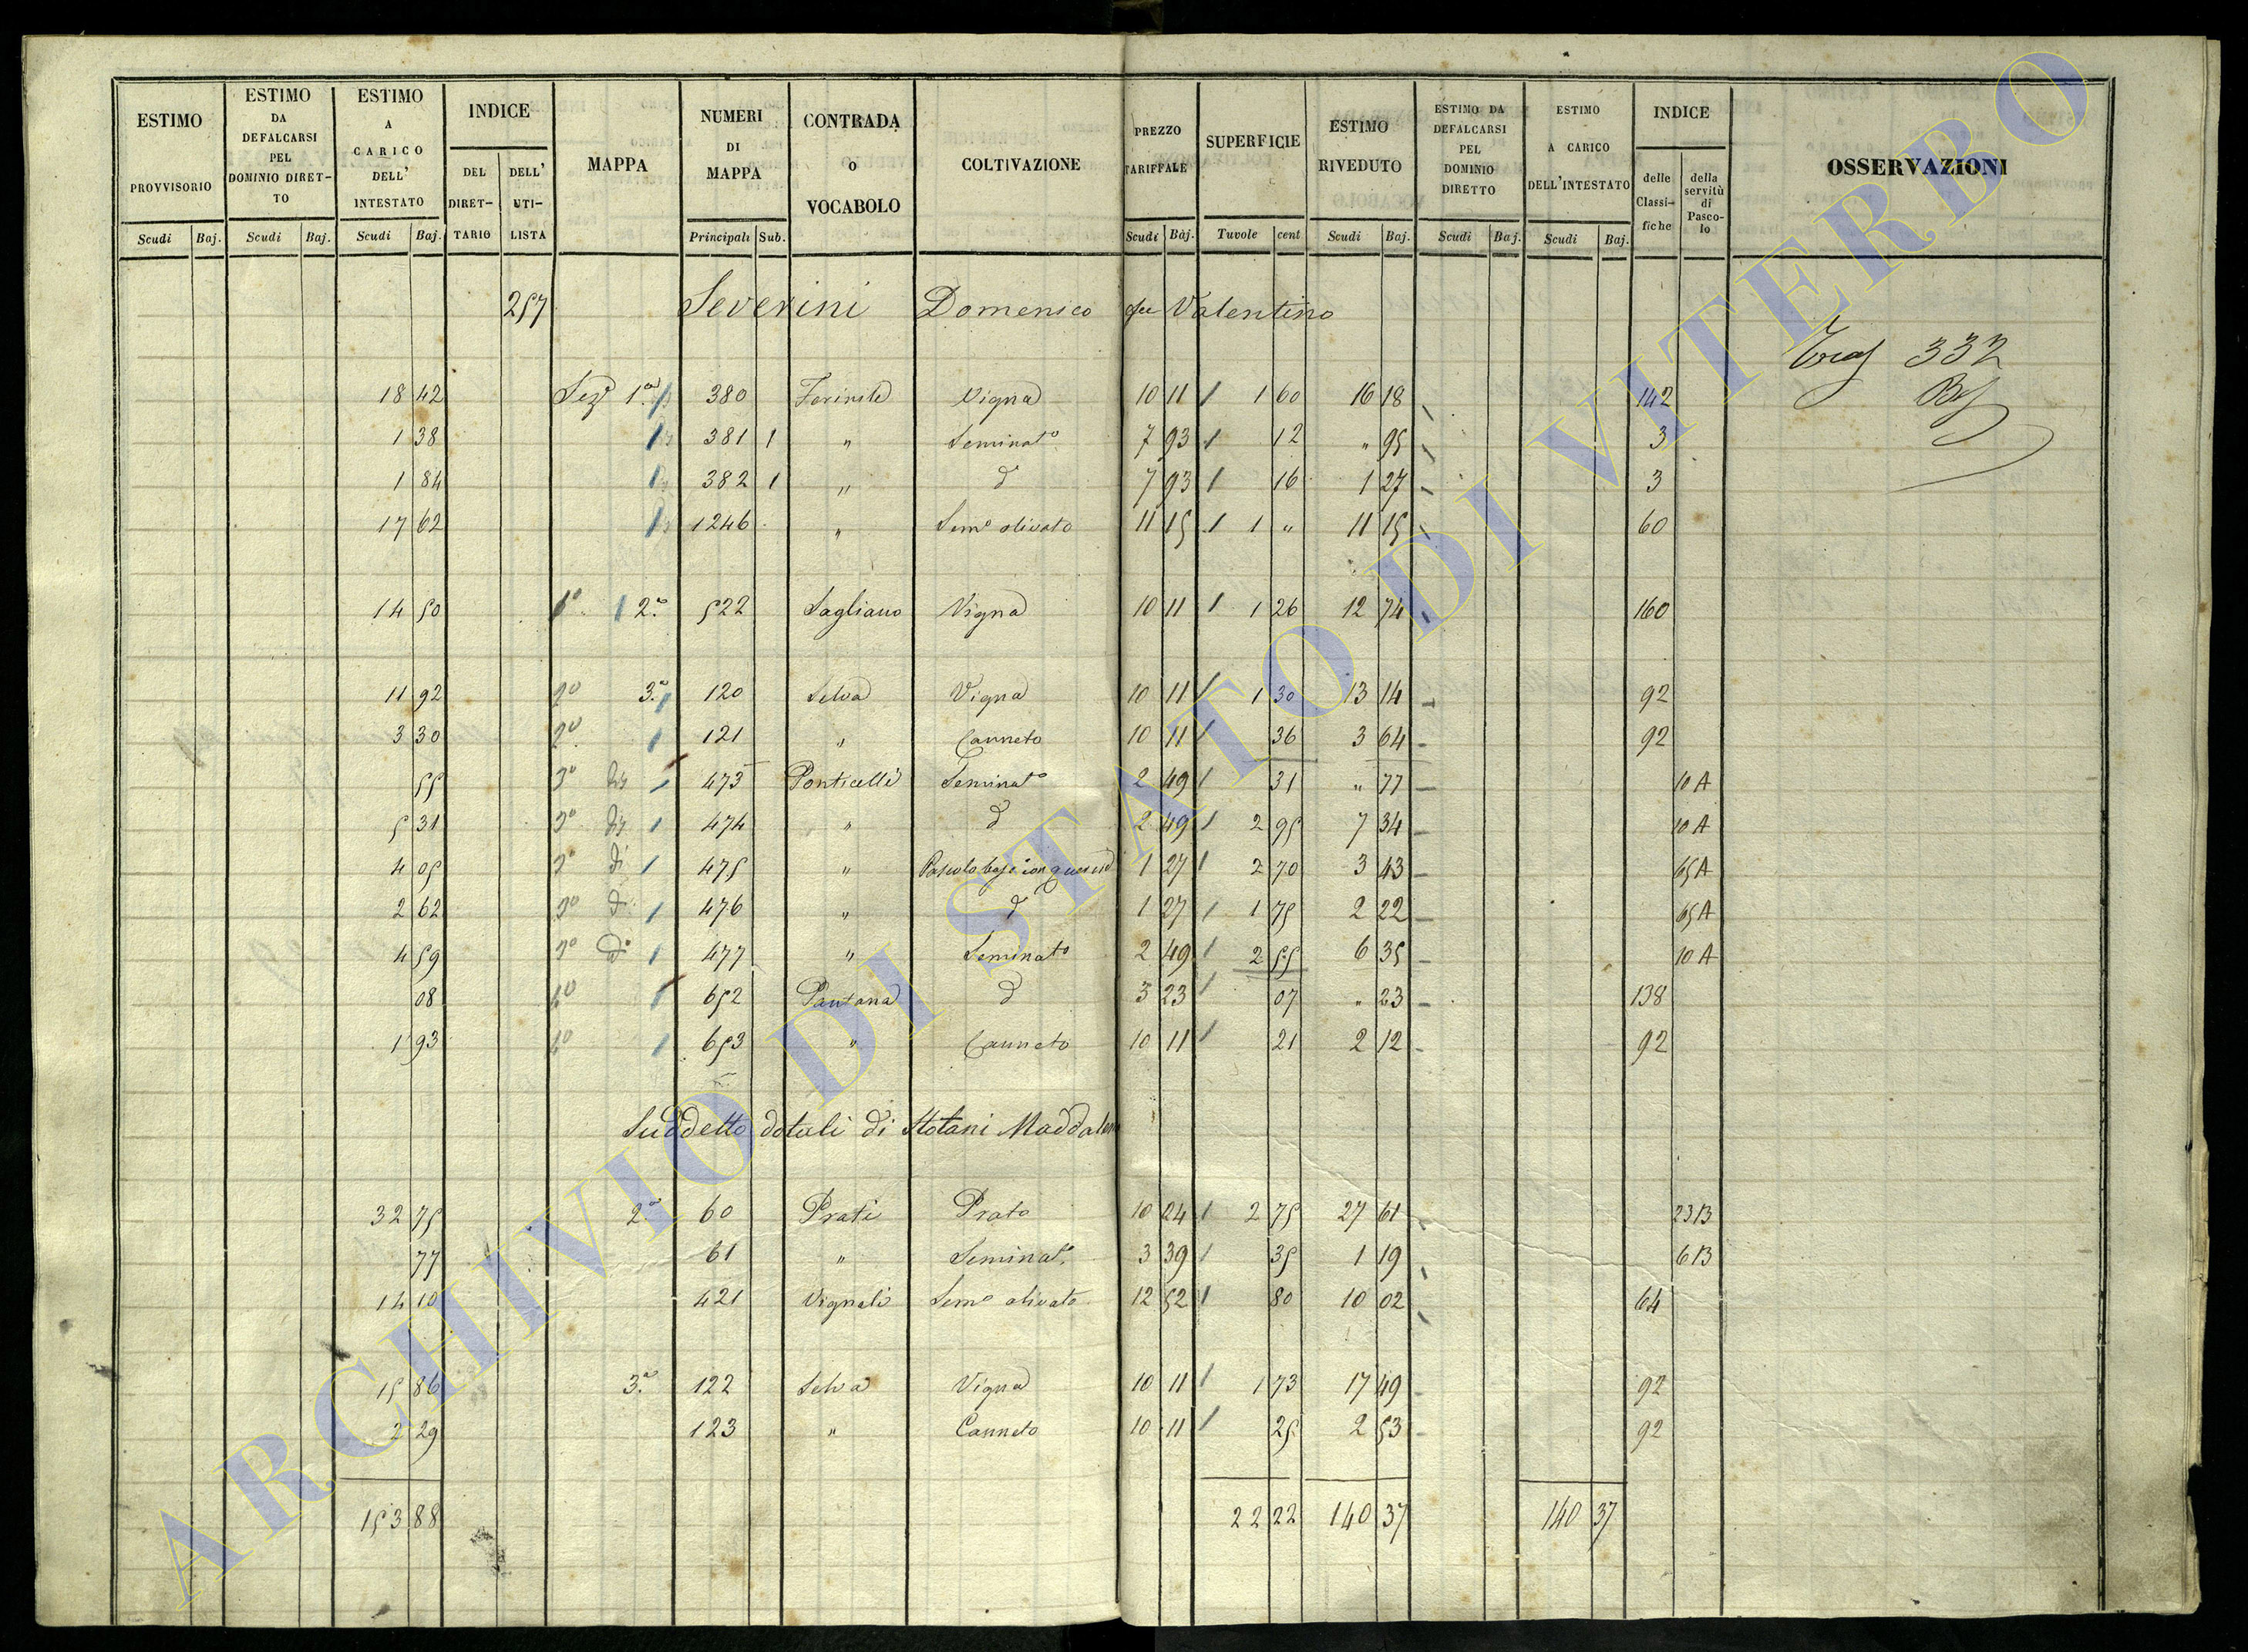 ESTIMO PROVVISORIO Scudi Baj. ESTIMO DA DEFALCARSI PEL DOMINIO DIRETTO Scudi Baj. ESTIMO A CARICO DELL' INTESTATO Scudi Baj. INDICE DEL DIRETTARIO DELL' UTILISTA MAPPA NUMERI DI MAPPA Principali Sub. CONTRADA O VOCABOLO COLTIVAZIONE PREZZO TARIFFALE Scudi Baj. SUPERFICIE Tuvole cent ESTIMO RIVEDUTO Scudi Baj. ESTIMO DA DEFALCARSI PEL DOMINIO DIRETTO Scudi Baj. ESTIMO A CARICO DELL'INTESTATO Scudi Baj. INDICE delle Classifiche della servitù di Pascolo OSSERVAZIONI
257 Severini Domenico fu Valentino
332
18 42 Sez. 1.a 380 Vigna 10 11 1 60 16 18 142
1 38 381 1 " Seminato 7 93 12 " 95 3
1 84 382 1 " do 7 93 16 1 27 3
17 62 1246 " Semo olivato 11 15 1 " 11 15 60
14 50 2.a 522 Sagliano Vigna 10 11 1 26 12 74 160
11 92 3.a 120 Selva Vigna 10 11 1 30 13 14 92
3 30 121 " Canneto 10 11 36 3 64 92
55 473 Ponticelli Seminato 2 49 31 " 77 10 A
5 31 474 " do 2 49 2 95 7 34 10 A
4 05 475 " Pascolo 1 27 2 70 3 43 65 A
2 62 476 " do 1 27 1 75 2 22 65 A
4 59 do 477 " Seminato 2 49 2 55 6 35 10 A
08 652 Pantana do 3 23 07 " 23 138
1 93 653 " Canneto 10 11 21 2 12 92
Suddetto dotali di Stotani Maddalena
32 75 2.a 60 Prati Prato 10 04 2 75 27 61 23 B
77 61 " Seminato 3 39 35 1 19 6 B
14 10 421 Vignali Semo olivato 12 52 80 10 02 64
15 86 3.a 122 Selva Vigna 10 11 1 73 17 49 92
2 29 123 " Canneto 10 11 25 2 53 92
153 88 22 22 140 37 140 37
ARCHIVIO DI STATO DI VITERBO